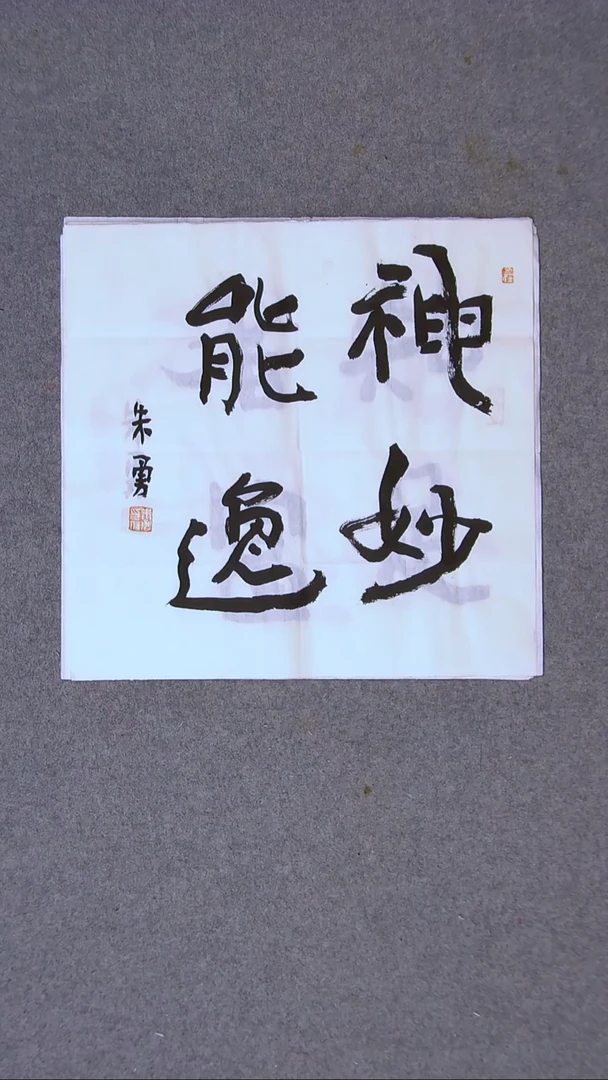 神妙
能逸
朱勇